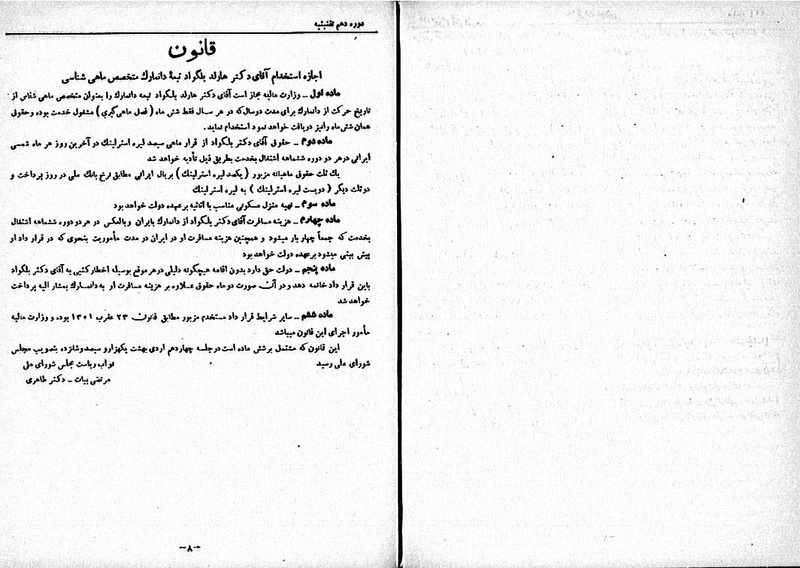 دوره دهم تقنینیه
قانون
اجازه استخدام آقای دکتر هارلد بلگواد تبعهٔ دانمارك متخصص ماهی شناسی
ماده اول ــ وزارت مالیه مجاز است آقای دکتر هارلد بلگواد تبعه دانمارك را بعنوان متخصص ماهی شناس از
تاریخ حرکت از دانمارك برای مدت دوسال که در هر سال فقط شش ماه ( فصل ماهی‌گیری ) مشغول خدمت بوده وحقوق
همان شش ماه رانیز دریافت خواهد نمود استخدام نماید .
ماده دوم ــ حقوق آقای دکتر بلگواد از قرار ماهی سیصد لیره استرلینك در آخرین روز هر ماه شمسی
ایرانی درهر دو دوره ششماهه اشتغال بخدمت بطریق ذیل تأدیه خواهد شد
یك ثلث حقوق ماهیانه مزبور ( یکصد لیره استرلینك ) بریال ایرانی مطابق نرخ بانك ملی در روز پرداخت و
دو ثلث دیگر ( دویست لیره استرلینك ) به لیره استرلینك
ماده سوم ــ تهیه منزل مسکونی مناسب با اثاثیه برعهده دولت خواهد بود
ماده چهارم ــ هزینه مسافرت آقای دکتر بلگواد از دانمارك بایران و بالعکس در هر دو دوره ششماهه اشتغال
بخدمت که جمعاً چهار بار میشود و همچنین هزینه مسافرت او در ایران در مدت مأموریت بنحوی که در قرار داد او
پیش بینی میشود برعهده دولت خواهد بود
ماده پنجم ــ دولت حق دارد بدون اقامه هیچگونه دلیلی درهر موقع بوسیله اخطار کتبی به آقای دکتر بلگواد
باین قرار داد خاتمه دهد و در آن صورت دوماه حقوق علاوه بر هزینه مسافرت او به دانمارك بمشار الیه پرداخت
خواهد شد
ماده ششم ــ سایر شرایط قرار داد مستخدم مزبور مطابق قانون ۲۳ عقرب ۱۳۰۱ بوده و وزارت مالیه
مأمور اجرای این قانون میباشد
این قانون که مشتمل برشش ماده است درجلسه چهاردهم اردی بهشت یکهزارو سیصد وشانزده بتصویب مجلس
شورای ملی رسید
نواب ریاست مجلس شورای ملی
مرتضی بیات ــ دکتر طاهری
ــ۸ــ